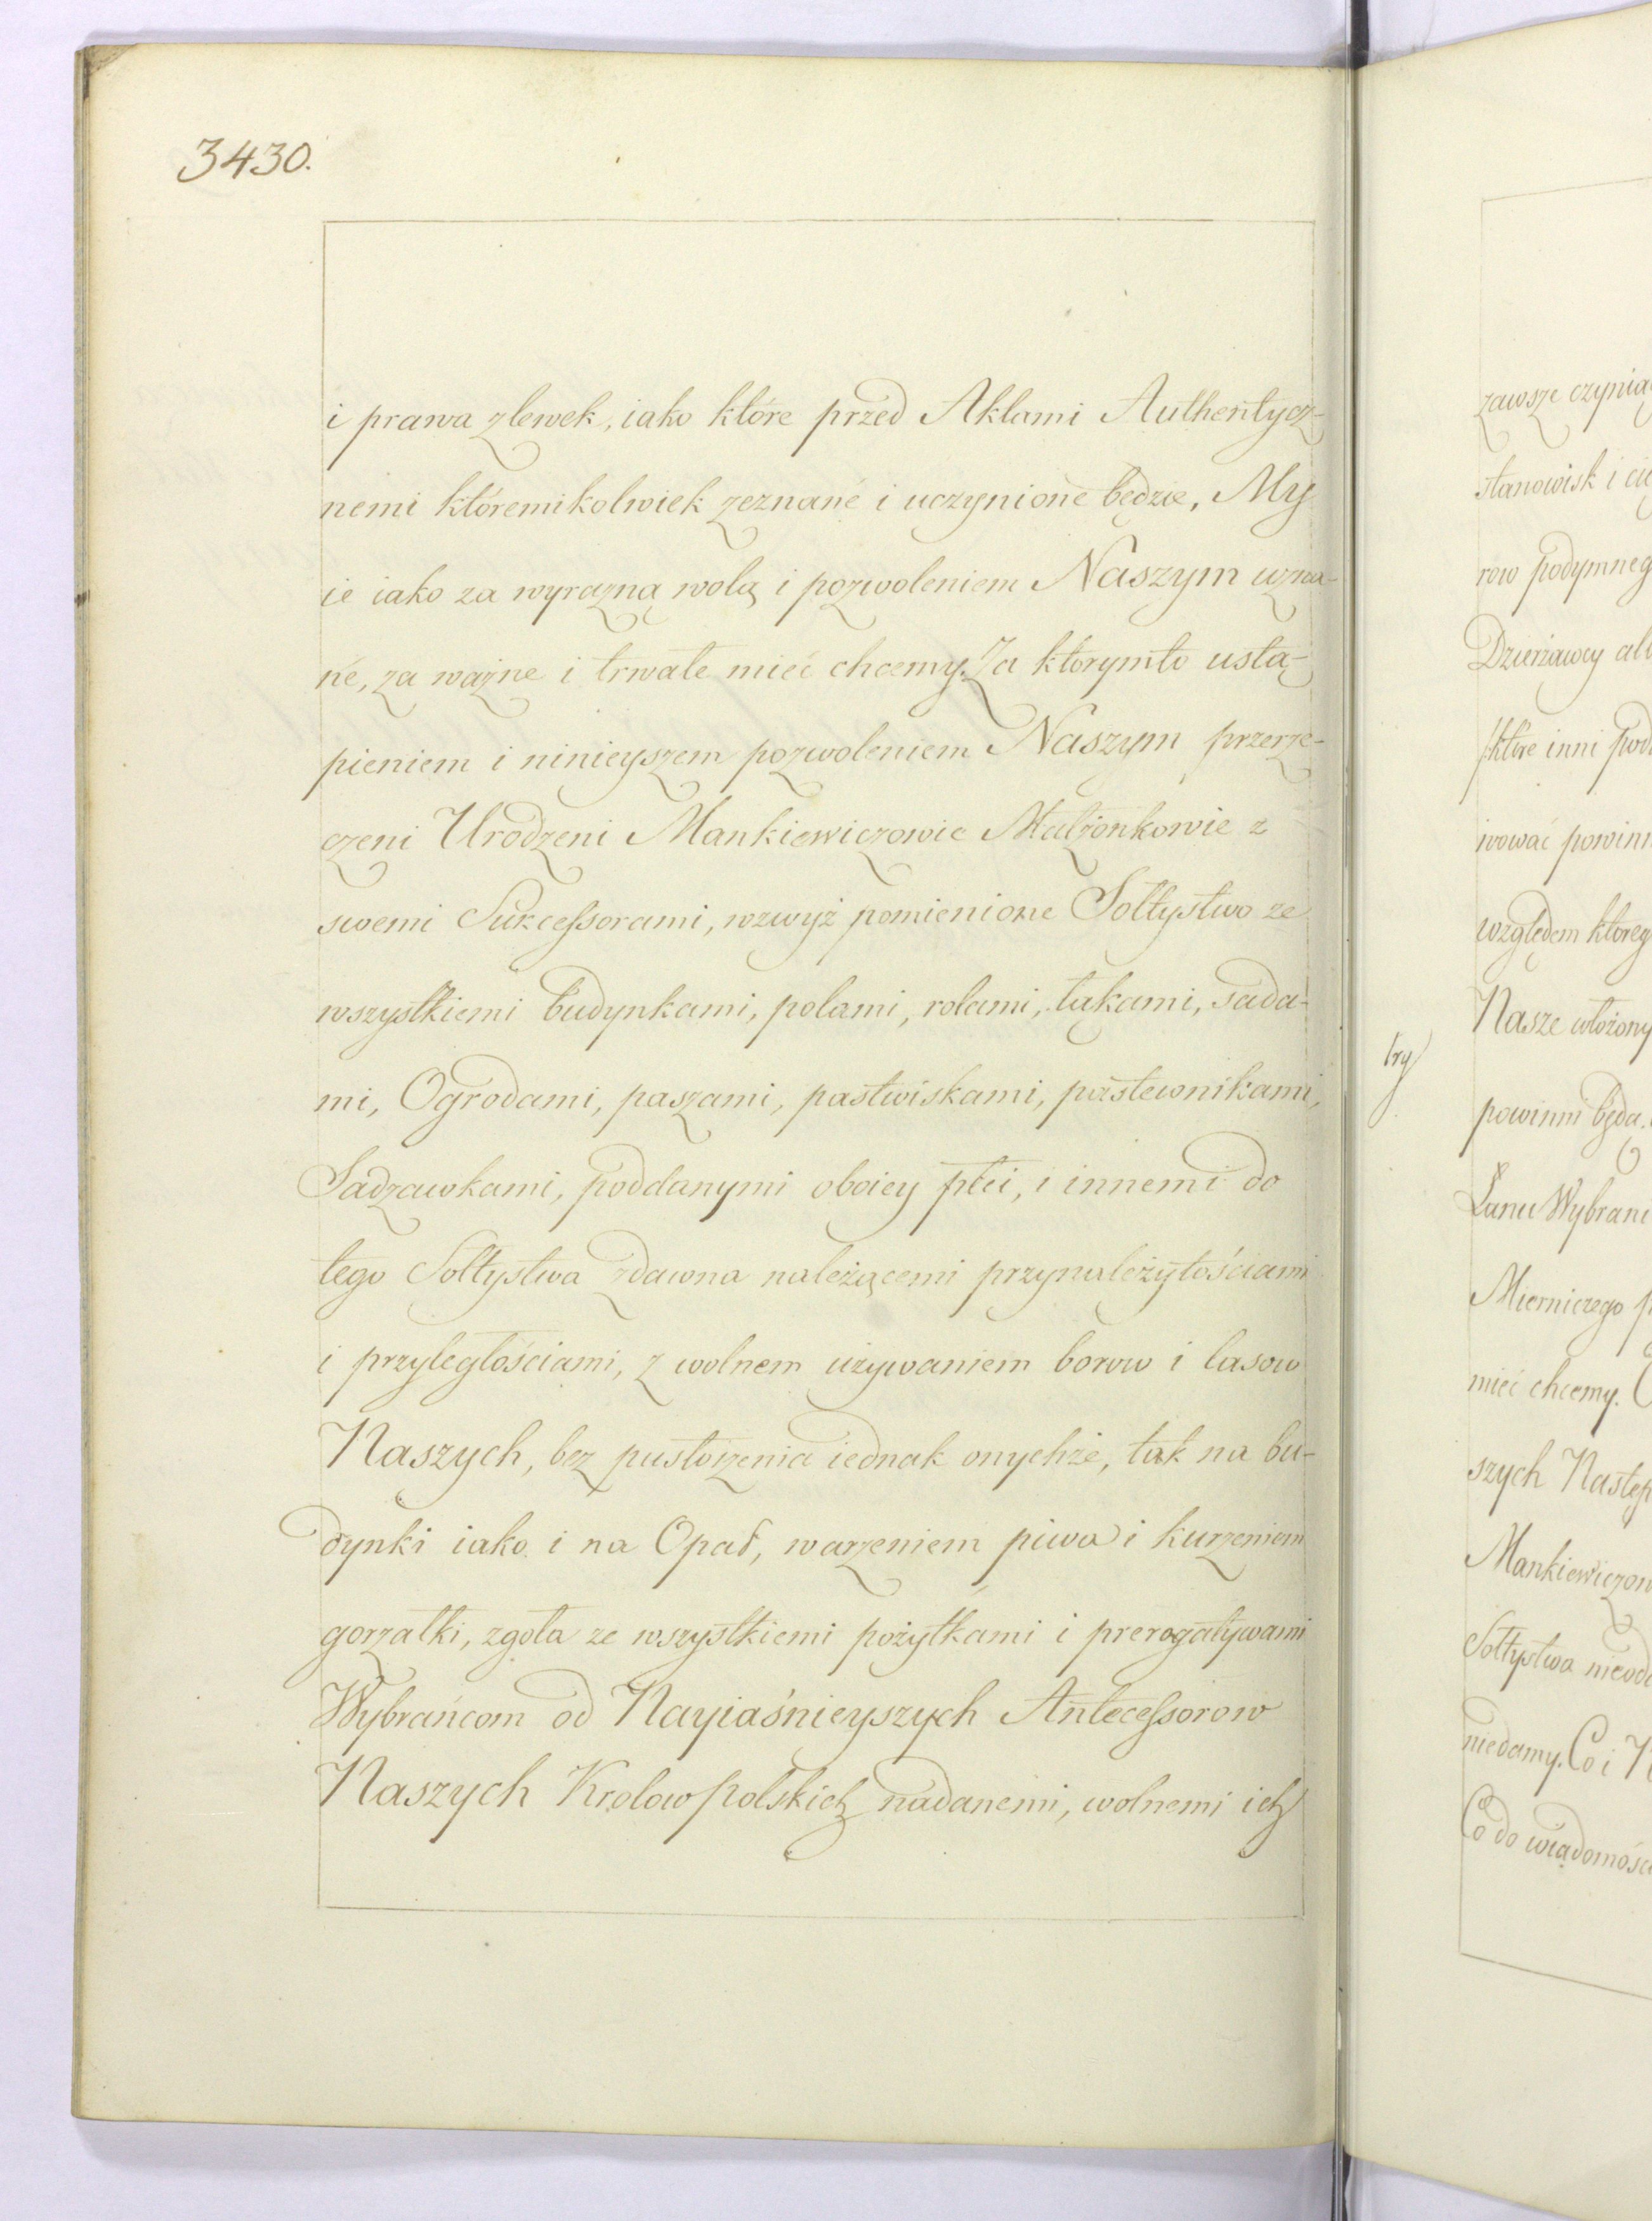 3430.
i prawa zlewek, iako które przed Aktami Authentycz-
nemi któremikolwiek zeznané i uczynioné będzie, My
ie iako za wyrazną wolą i pozwoleniem Naszym uzna-
né, za ważne i trwałe mieć chcemy. Za ktorymto ustą-
pieniem i ninieyszem pozwoleniem Naszym przerze-
czeni Urodzeni Mankiewiczowie Małżonkowie z
swemi Sukcessorami, wzwyż pomienione Sołtystwo ze
wszystkiemi budynkami, polami, rolami, łąkami, sada-
mi, Ogrodami, paszami, pastwiskami, pastewnikami,
Sadzawkami, poddanymi oboiey płci, i innemi do
tego Sołtystwa zdawna należącemi przynależytościami
i przyległościami, z wolnem używaniem borow i lasow
Naszych, bez pustoszenia iednak onychże, tak na bu-
dynki iako i na Opał, warzeniem piwa i kurzeniem
gorzałki, zgoła ze wszystkiemi pożytkami i prerogatywami
Wybrańcom od Nayiaśnieyszych Antecessorow
Naszych Krolow Polskich nadanemi, wolnemi ich
zawsze
stanowisk i
row
Dzierżawcy
które inni
wować
względem
Nasze włożony
try
powinni będą.
Łanu
Mierniczego
mieć chcemy.
szych
Sołtystwa
niedamy. Co i
Co do